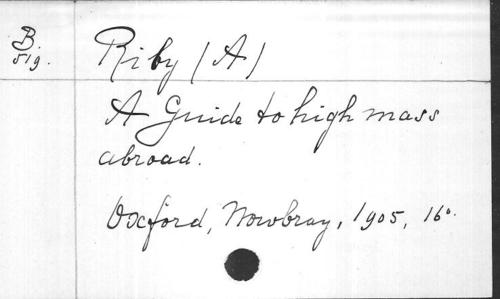 B.
519.
Riby (A)
A Guide to high mass
abroad.
Oxford, Mowbray, 1905, 16°.